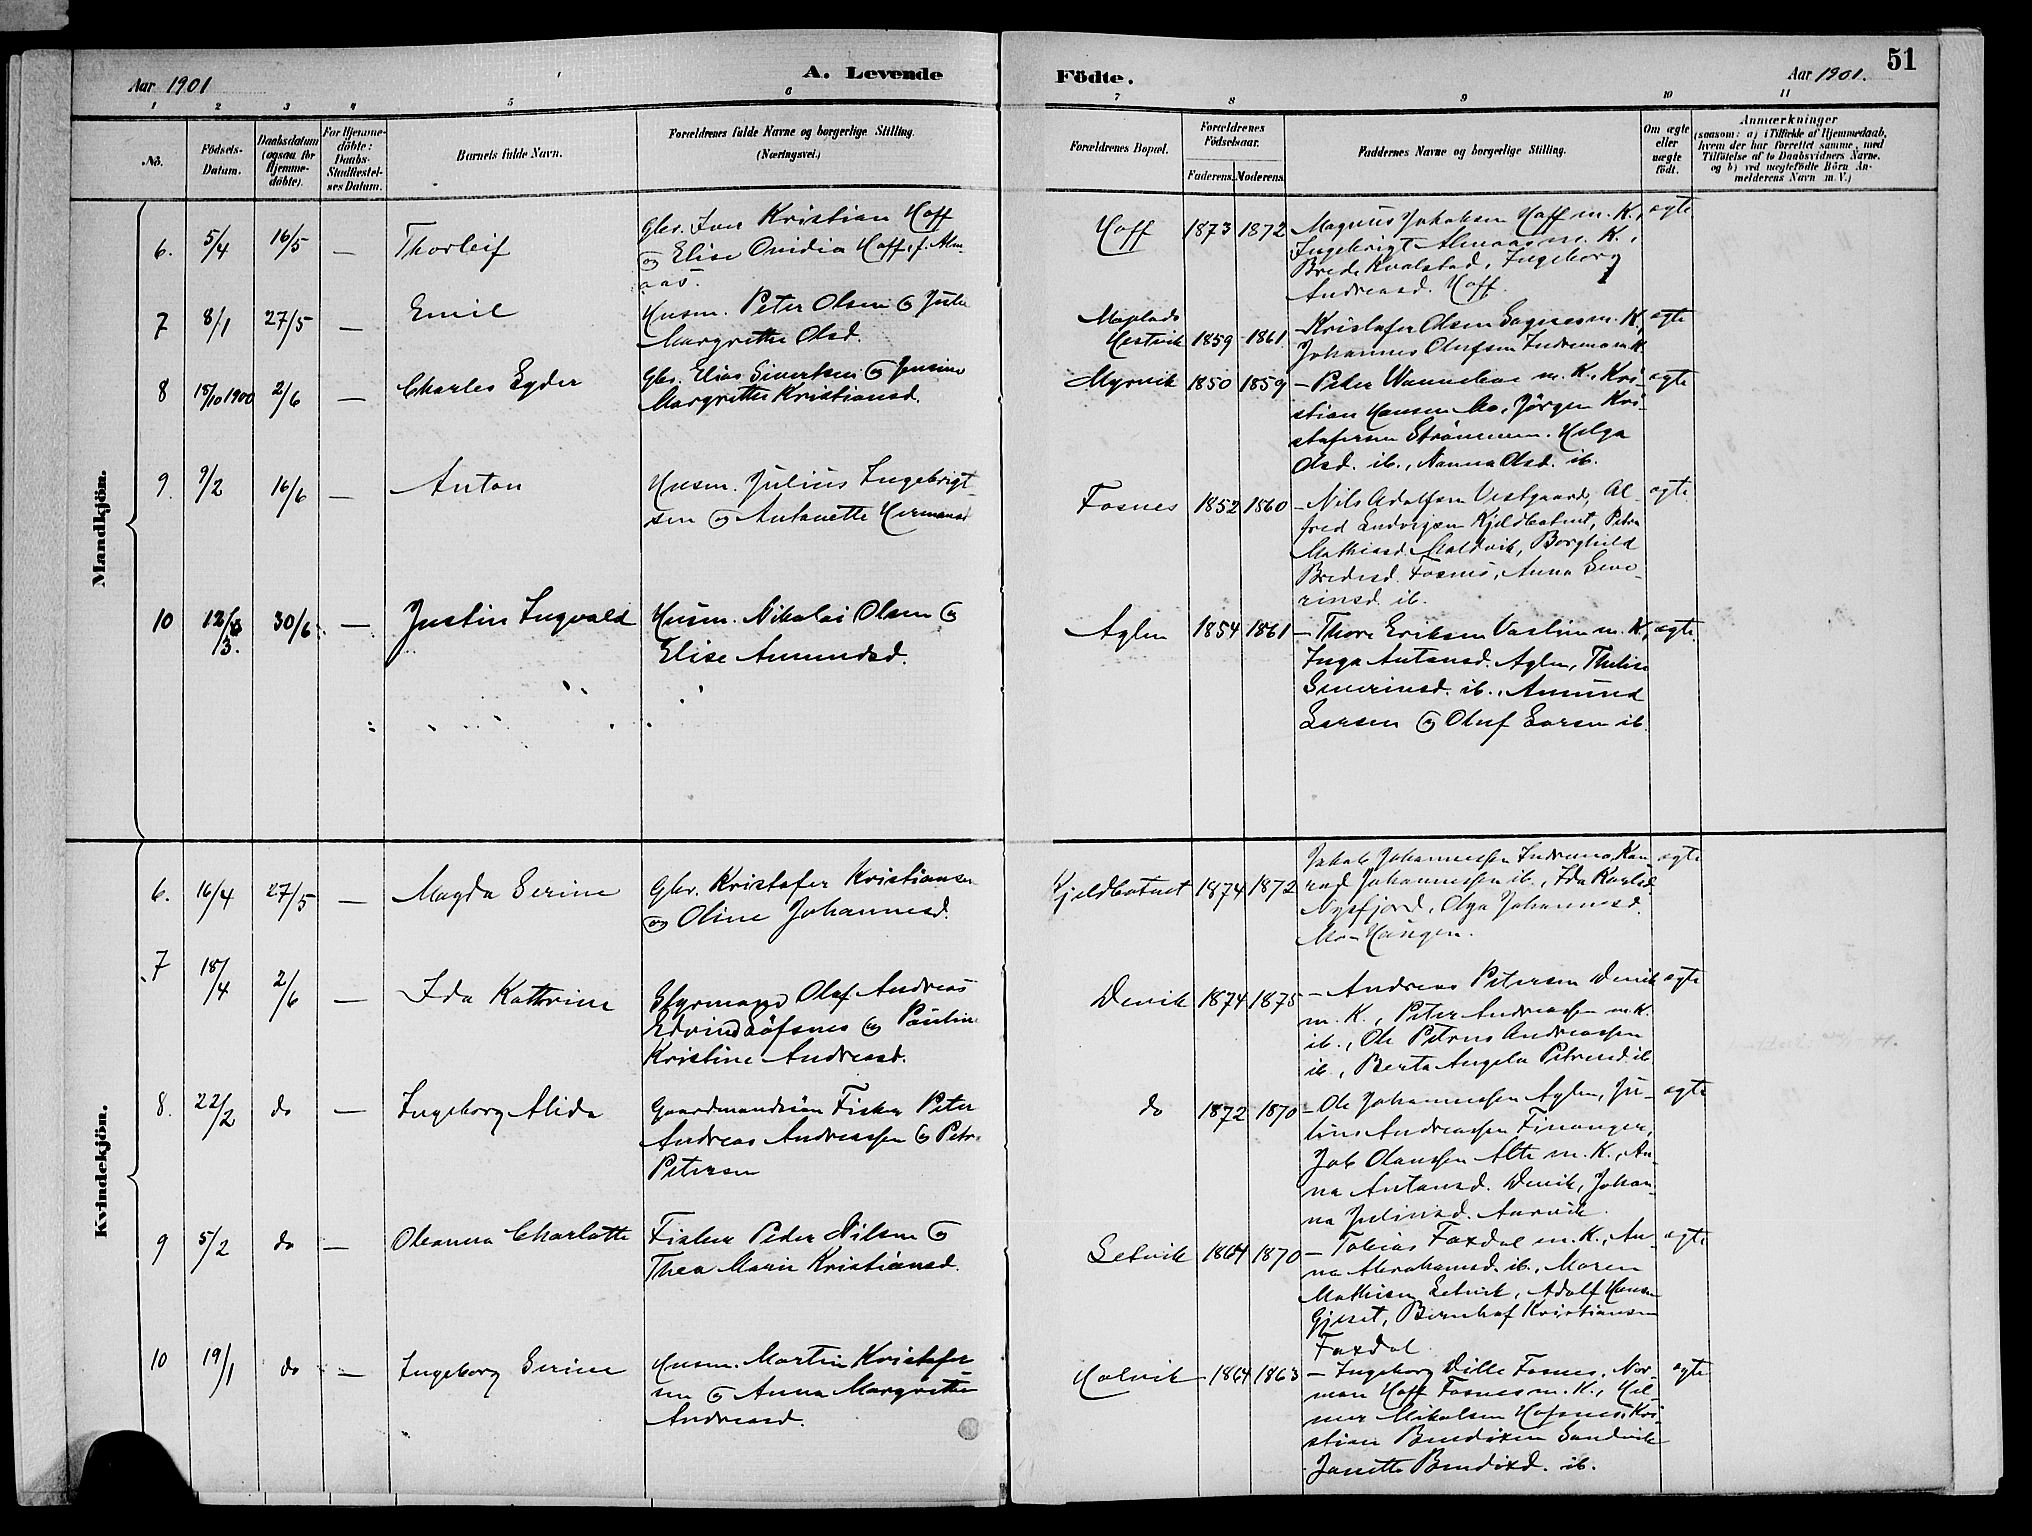 51
Aar 1901
A. Levende
Födte.
Aar 1901.
1 2 3 4 5 6 7 8 9 10 11
No.
Födsels-
Datum.
Daabsdatum
(ogsaa for
Hjemme-
döbte).
For Hjemme-
döbte:
Daabs-
Stadfæstel-
ses Datum.
Barnets fulde Navn.
Forældrenes fulde Navne og borgerlige Stilling.
(Næringsvei.)
Forældrenes Bopæl.
Forældrenes
Födselsaar.
Faderens. Moderens.
Faddernes Navne og borgerlige Stilling.
Om ægte
eller
uægte
födt.
Anmærkninger
(saasom: a) i Tilfælde af Hjemmedaab,
hvem der har forrettet samme, med
Tilföielse af to Daabsvidners Navne,
og b) ved uægtefödte Börn An-
melderens Navn m. V.)
Mandkjön.
6. 5/4 16/5 — Thorleif
Gbr. Iver Kristian Hoff
og Elise Ovidia Hoff f. Alm-
aas.
Hoff 1873 1872
Magnus Jakobsen Hoff m. K., ægte
Ingebrigt Almaas m. K.,
Brede Kvalstad, Ingeborg
Andreasd. Hoff.
7 8/1 27/5 — Emil
Husm. Peter Olsen og
Margrethe Olsd.
Moplads
Hestvik 1859 1861
— Kristofer Olsen Sagnes m. K., ægte
Johannes Olufsen Indremo m. K.
8 15/10 1900 2/6 — Charles Egder
Gbr. Elias Sivertsen og Jensine
Margrethe Kristiansd.
Myrvik 1850 1859
— Peder Wannebo m. K., Kri- ægte
stian Hansen Mo, Jörgen Kri-
stofersen Strömmen. Helga
Olsd. ib., Nanna Olsd. ib.
9. 9/2 16/6 — Anton
Husm. Julius Ingebrigt-
sen og Antonette Hermansd
Fosnes 1852 1860
— Nils Adolfsen Vestgaard, Al- ægte
fred Ludvigsen Kjeldbotnet, Petra
Mathiasd. Maldvik, Borghild
Bredesd. Fosnes, Anna Seve-
rinsd. ib.
10 12/3. 30/6 — Justin Ingvald
Husm. Nikolai Olsen og
Elise Amundsd.
Aglen 1854 1861
— Thore Eriksen Vaslien m. K., ægte
Inga Antonsd. Aglen, Theline
Severinsd. ib., Amund
Larsen og Oluf Larsen ib.
Kvindekjön.
6. 16/4 27/5 — Magda Serine
Gbr. Kristofer Kristiansen
og Oline Johannesd.
Kjeldbotnet 1874 1872
Jakob Johannessen Indremo, Kon- ægte
rad Johannessen ib., Ida Karlsd
Nysfjord, Olga Johannesd.
Mo-Haugen.
7 18/4 2/6 — Ida Kathrine
Styrmand Olaf Andreas
Edvind Löfsnes og Pauline
Kristine Andreasd.
Devik 1874 1875
— Andreas Petersen Devik ægte
m. K., Peter Andreassen m. K.
ib., Ole Petrus Andreassen
ib., Berta Angela Petersd. ib.
8. 22/2 do — Ingeborg Alida
Gaardmandssön Fisker Peter
Andreas Andreassen og Petra
Petersen
do 1872 1870
— Ole Johannessen Aglen, Ju- ægte
lius Andreassen Finanger,
Job Olaussen Alte m. K., An-
na Antonsd. Devik, Johan-
na Juliusd. Aunvik.
9 5/2 do — Oleanna Charlotte
Fisker Peder Nilsen og
Thea Marie Kristiansd.
Setvik 1864 1870
— Tobias Faxdal m. K., An- ægte
na Abrahamsd. ib., Maren
Mathisen Setvik, Adolf Hansen
Gjeset, Bernhof Kristiansen
Faxdal.
10 19/1 do — Ingeborg Serine
Husm. Martin Kristofer-
sen og Anna Margrethe
Andreasd.
Halvik 1864 1863
— Ingeborg Dille Fosnes, Nor- ægte
man Hoff Fosnes m. K., Hil-
mar Mikalsen Hofsnes, Kri-
stian Bendixen Sandvik
Janette Bendixd. ib.